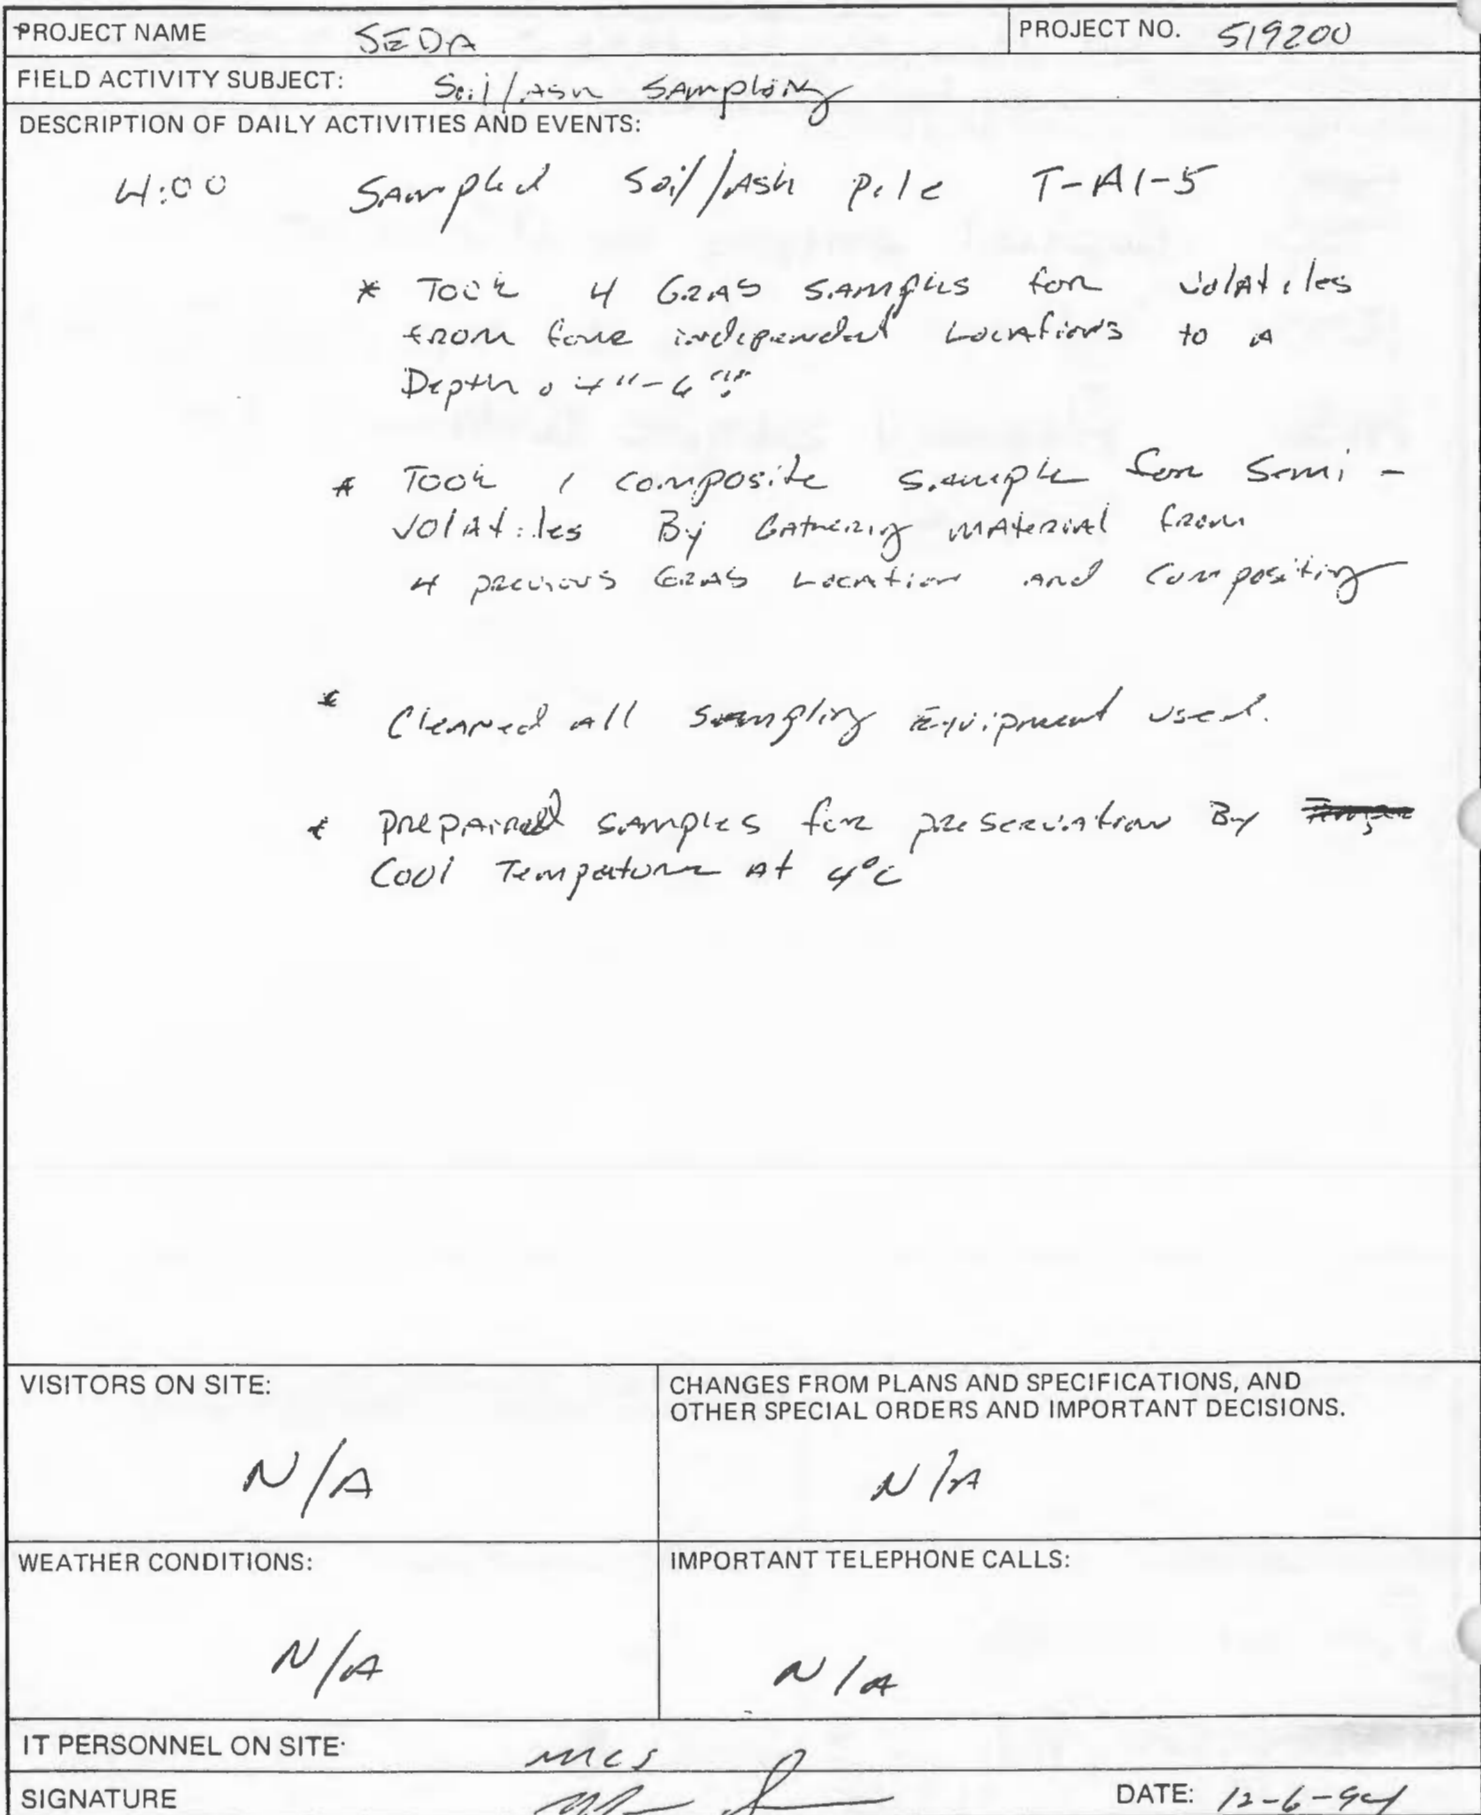 PROJECT NAME SEDA PROJECT NO. 519200
FIELD ACTIVITY SUBJECT: Soil/Ash Sampling
DESCRIPTION OF DAILY ACTIVITIES AND EVENTS:
4:00 Sampled Soil/Ash Pile T-A1-5
* Took 4 GRAB SAMPLES for Volatiles
from four independent Locations to a
Depth 4"-6"
* Took 1 composite sample for Semi-
Volatiles By Gathering Material from
4 previous GRAB Location and Compositing
* Cleaned all sampling Equipment used.
* Prepaired samples for preservation By
Cool Tempature At 4°C
VISITORS ON SITE:
CHANGES FROM PLANS AND SPECIFICATIONS, AND
OTHER SPECIAL ORDERS AND IMPORTANT DECISIONS.
N/A
N/A
WEATHER CONDITIONS:
IMPORTANT TELEPHONE CALLS:
N/A
N/A
IT PERSONNEL ON SITE: MCS
SIGNATURE DATE: 12-6-94